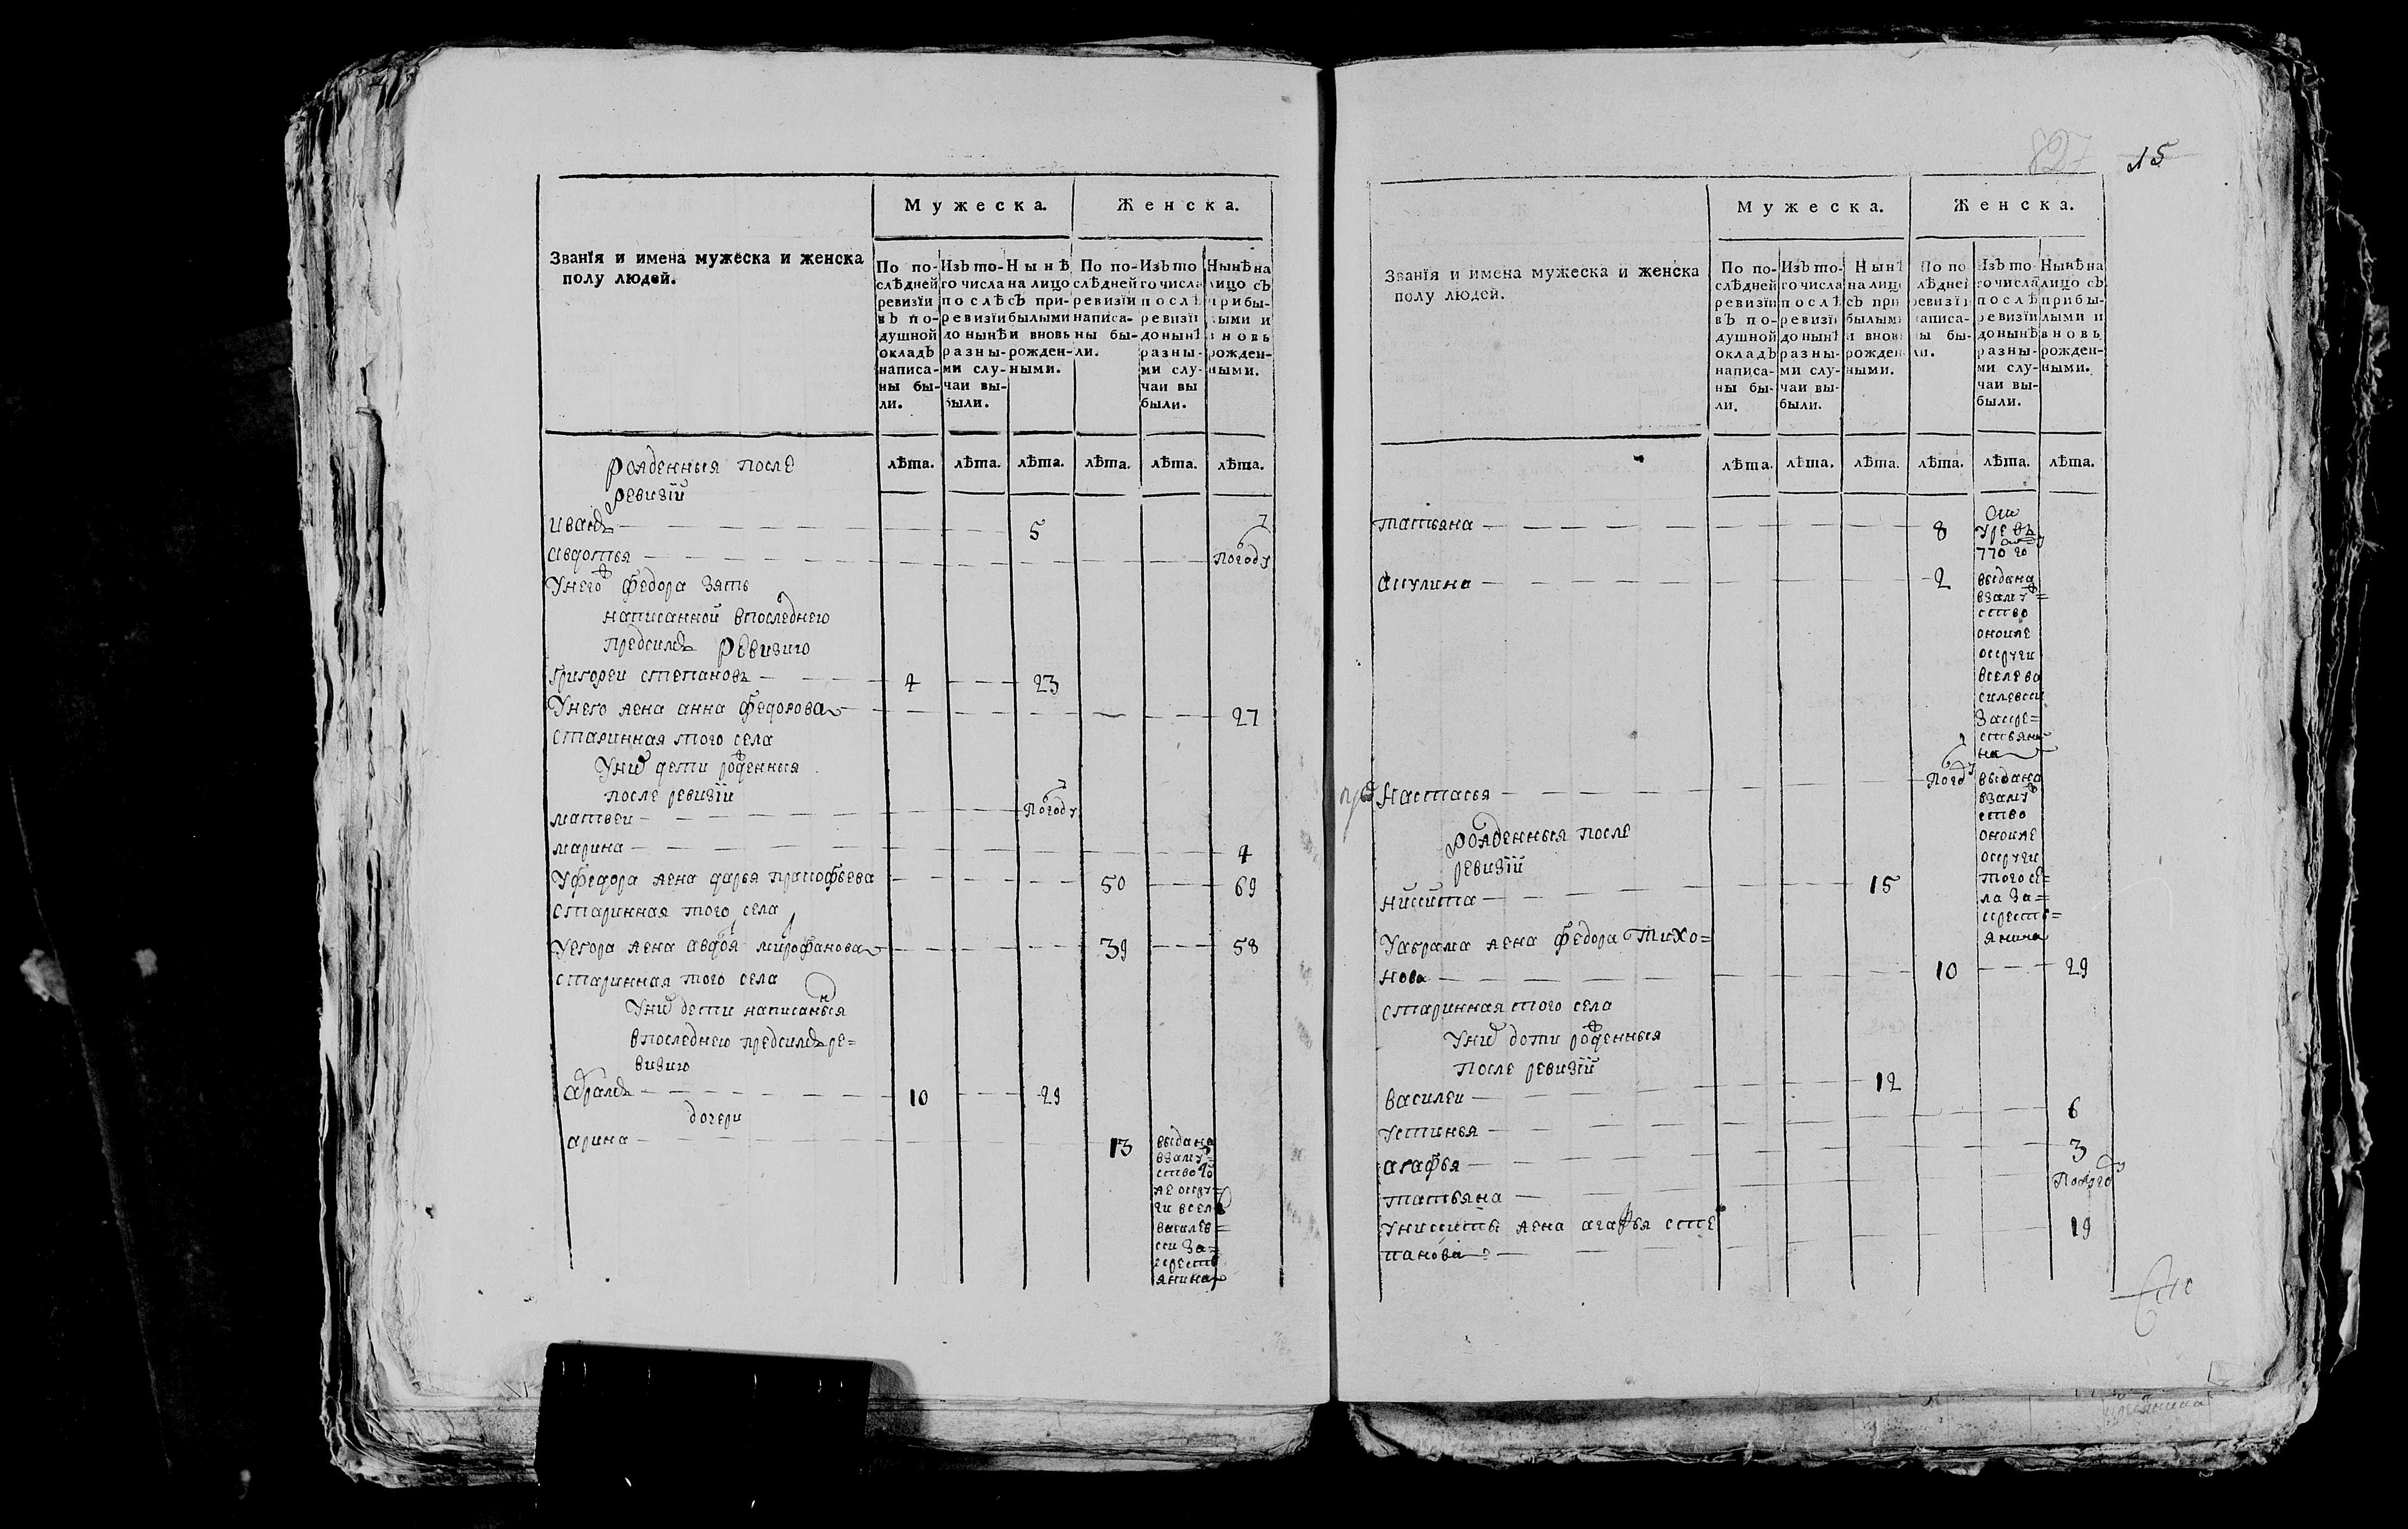 Званїя и имена мужеска и женска
полу людей.
Мужеска.
Женска.
По по-
слѣдней
ревизїи
въ по-
душной
окладъ
написа-
ны бы-
ли.
Изъ то-
го числа
послѣ
ревизїи
до нынѣ
разны-
ми слу-
чаи вы-
были.
Нынѣ
на лицо
съ при-
былыми
и вновь
рожден-
ными.
По по-
слѣдней
ревизїи
написа-
ны бы-
ли.
Изъ то
го числа
послѣ
ревизїи
до нынѣ
разны-
ми слу-
чаи вы
были.
Нынѣ на
лицо съ
прибы-
лыми и
вновь
рожден-
ными.
лѣта. лѣта. лѣта. лѣта. лѣта. лѣта.
рожденныя после
ревизїи
иванъ 5
авдотья погоду
Унего федора зять
написанной впоследнею
предсимъ ревизию
григореи степановъ 4 23
Унего жена анна федорова 27
старинная того села
Унихъ дети рожденныя
после ревизїи
матвеи погоду
марина 4
Уфедора жена дарья пракофьева 50 69
старинная того села
Уегора жена авдотя митрофанова 39 58
старинная того села
Унихъ дети написанныя
впоследнею предсимъ ре=
визию
абрамъ 10 29
дочери
арина 13
выдана
взаму=
ство тои
же окру=
ги всело
василев=
ки за=
крестья
янина
827 15
Званїя и имена мужеска и женска
полу людей.
Мужеска.
Женска.
По по-
слѣдней
ревизїи
въ по-
душной
окладъ
написа-
ны бы-
ли.
Изъ то-
го числа
послѣ
ревизїи
до нынѣ
разны-
ми слу-
чаи вы-
были.
Нынѣ
на лицо
съ при
былыми
и вновь
рожден
ными.
По по
слѣдней
ревизїи
написа-
ны бы-
ли.
Изъ то
го числа
послѣ
ревизїи
до нынѣ
разны-
ми слу-
чаи вы-
были.
Нынѣ на
лицо съ
прибы-
лыми и
вновь
рожден-
ными.
лѣта. лѣта. лѣта. лѣта. лѣта. лѣта.
татьяна 8
770 го
акулина 2
выдана
взаму=
ство
оноиже
округи
вселева
силевки
закре=
стьяни
на
Настасья погоду
выдана
взаму
ство
оноиже
округи
того се=
ла за=
кресть=
янина
рожденныя после
ревизїй
никита 15
Уабрама жена федора тихо=
нова 10 29
старинная того села
Унихъ дети рожденныя
после ревизїй
василеи 12
устинья 6
агафья 3
татьяна полуго
Уникиты жена агафья сте 19
панова